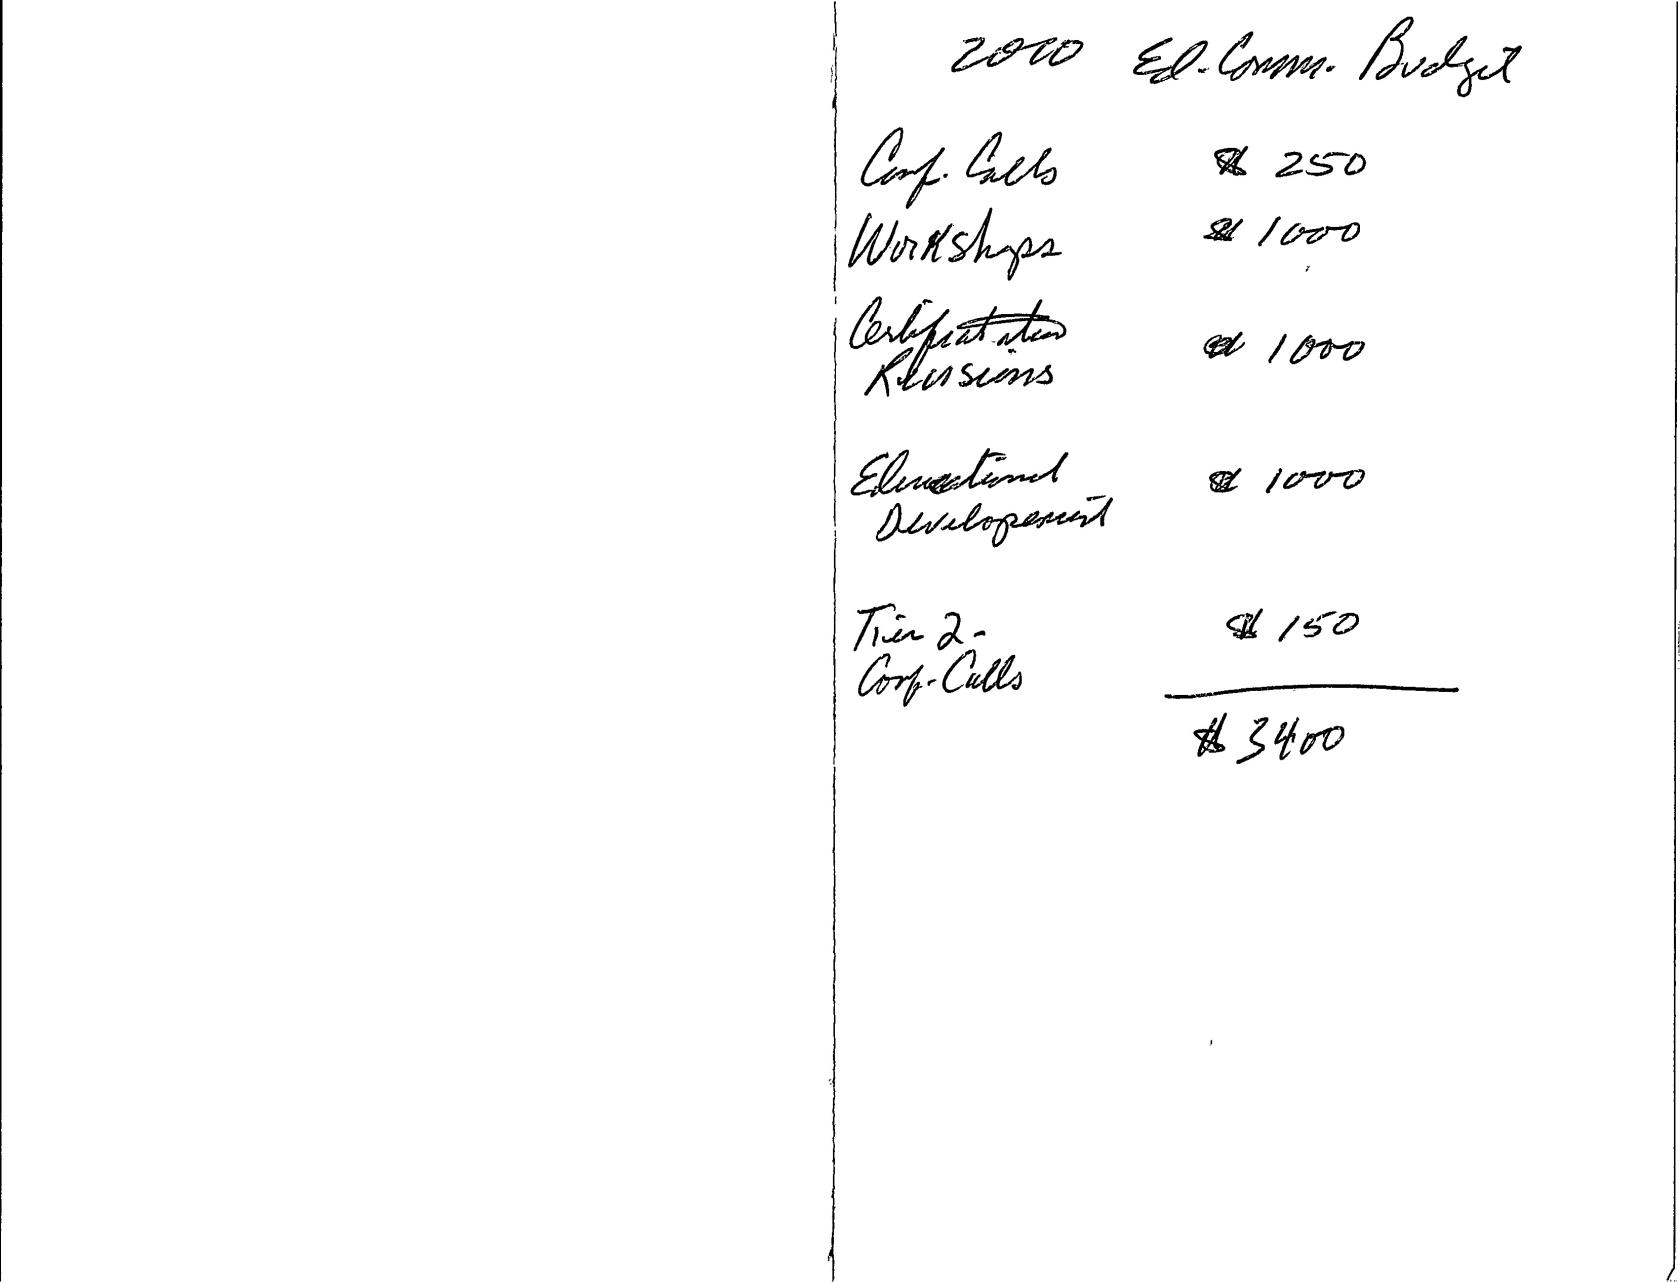 2010 Ed. Comm. Budget
Conf. Calls $ 250
Workshops $ 1000
Certification $ 1000
Revisions
Educational $ 1000
Development
Tier 2- $ 150
Conf. Calls
$ 3400